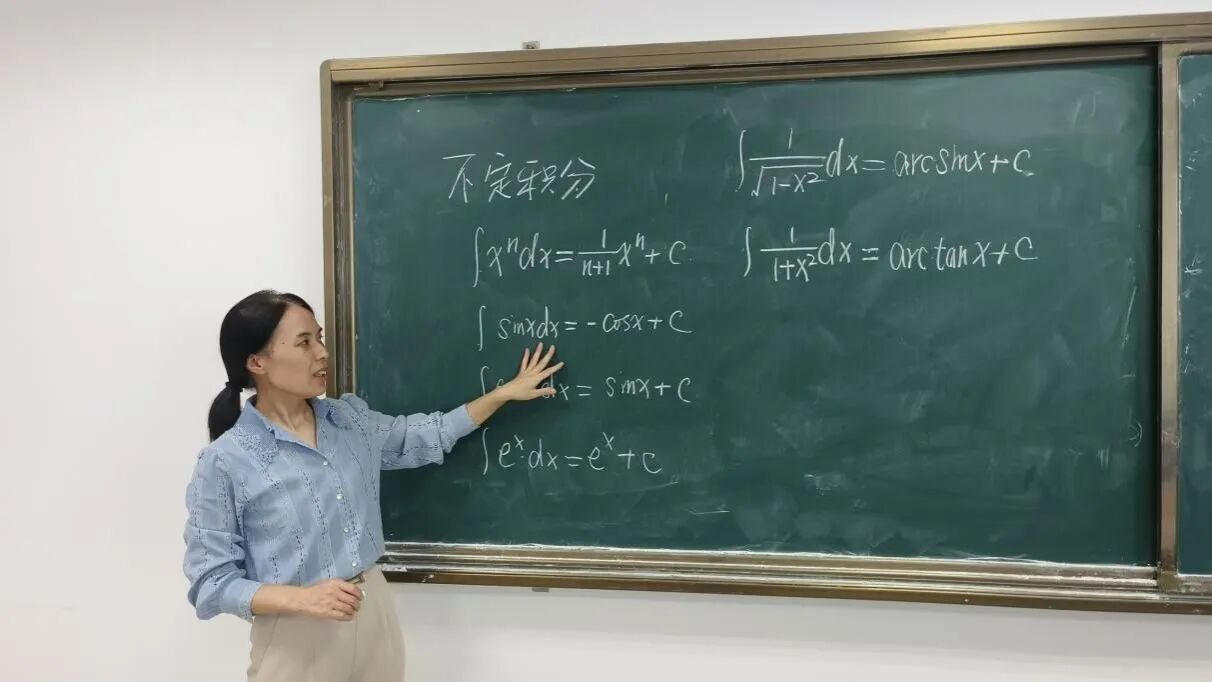 不定积分
∫xⁿdx = 1/(n+1) xⁿ + C
∫ sinxdx = -cosx + C
dx = sinx + C
∫eˣdx = eˣ + C
∫ 1/√(1-x²) dx = arcsinx + C
∫ 1/(1+x²) dx = arctanx + C